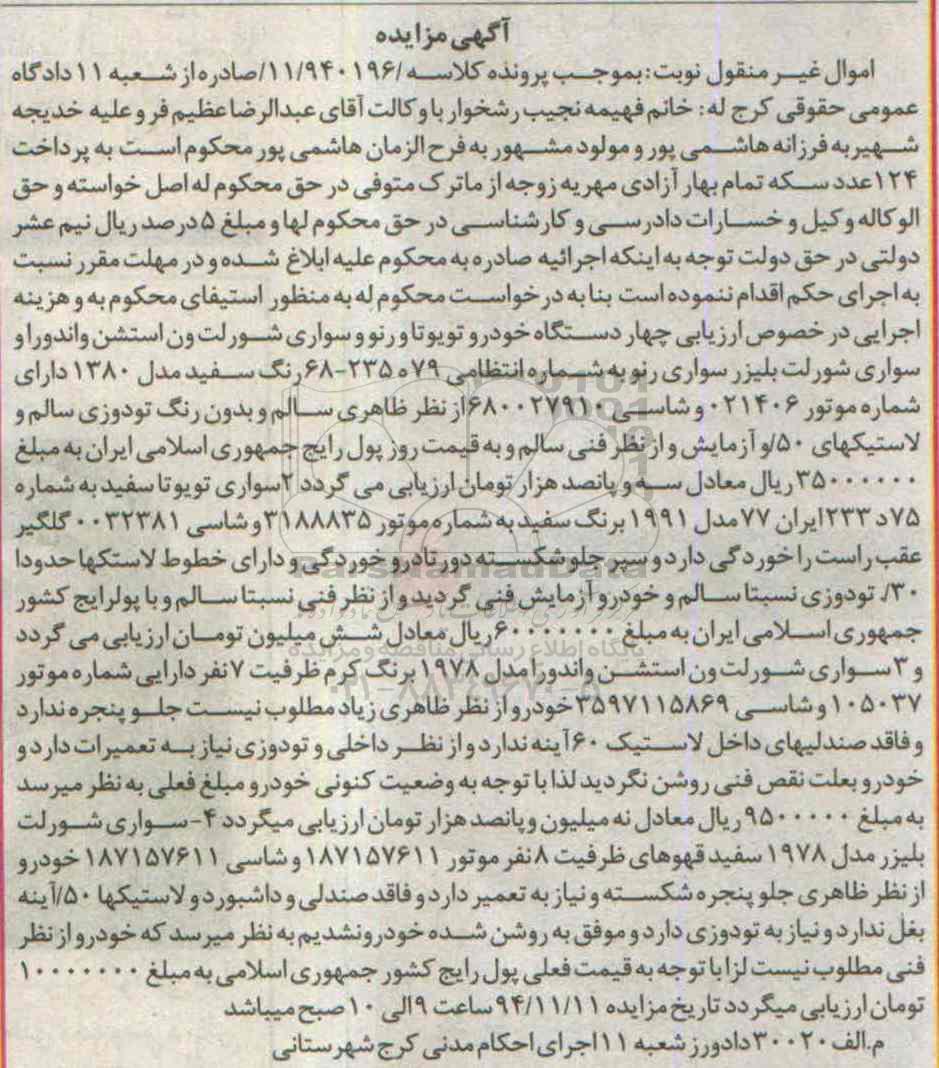 آگهی مزایده
اموال غیر منقول نوبت: بموجب پرونده کلاسه /۱۱/۹۴۰۱۹۶/صادره از شعبه ۱۱ دادگاه
عمومی حقوقی کرج له: خانم فهیمه نجیب رشخوار با وکالت آقای عبدالرضا عظیم فر و علیه خدیجه
شهیر به فرزانه هاشمی پور و مولود مشهور به فرح الزمان هاشمی پور محکوم است به پرداخت
۱۲۴عدد سکه تمام بهار آزادی مهریه زوجه از ماترک متوفی در حق محکوم له اصل خواسته و حق
الوکاله وکیل و خسارات دادرسی و کارشناسی در حق محکوم لها و مبلغ ۵درصد ریال نیم عشر
دولتی در حق دولت توجه به اینکه اجرائیه صادره به محکوم علیه ابلاغ شده و در مهلت مقرر نسبت
به اجرای حکم اقدام ننموده است بنا به درخواست محکوم له به منظور استیفای محکوم به و هزینه
اجرایی در خصوص ارزیابی چهار دستگاه خودرو تویوتا و رنو و سواری شورلت ون استشن واندورا و
سواری شورلت بلیزر سواری رنو به شماره انتظامی ۷۹ه ۲۳۵-۶۸رنگ سفید مدل ۱۳۸۰ دارای
شماره موتور ۰۲۱۴۰۶ و شاسی ۶۸۰۰۲۷۹۱۰از نظر ظاهری سالم و بدون رنگ تودوزی سالم و
لاستیکهای ۵۰/و آزمایش و از نظر فنی سالم و به قیمت روز پول رایج جمهوری اسلامی ایران به مبلغ
۳۵۰۰۰۰۰۰ ریال معادل سه و پانصد هزار تومان ارزیابی می گردد ۲سواری تویوتا سفید به شماره
۷۵د ۲۳۳ایران ۷۷مدل ۱۹۹۱ برنگ سفید به شماره موتور ۳۱۸۸۸۳۵و شاسی ۰۰۳۲۳۸۱ گلگیر
عقب راست را خوردگی دارد و سپر جلو شکسته دور تادرو خوردگی و دارای خطوط لاستکها حدودا
۳۰/. تودوزی نسبتا سالم و خودرو آزمایش فنی گردید و از نظر فنی نسبتا سالم و با پولرایج کشور
جمهوری اسلامی ایران به مبلغ ۶۰۰۰۰۰۰۰ریال معادل شش میلیون تومان ارزیابی می گردد
و ۳سواری شورلت ون استشن واندورا مدل ۱۹۷۸ برنگ کرم ظرفیت ۷نفر دارایی شماره موتور
۱۰۵۰۳۷ و شاسی ۳۵۹۷۱۱۵۸۶۹ خودرو از نظر ظاهری زیاد مطلوب نیست جلو پنجره ندارد
و فاقد صندلیهای داخل لاستیک ۶۰آینه ندارد و از نظر داخلی و تودوزی نیاز به تعمیرات دارد و
خودرو بعلت نقص فنی روشن نگردید لذا با توجه به وضعیت کنونی خودرو مبلغ فعلی به نظر میرسد
به مبلغ ۹۵۰۰۰۰۰ریال معادل نه میلیون و پانصد هزار تومان ارزیابی میگردد ۴-سواری شورلت
بلیزر مدل ۱۹۷۸ سفید قهوهای ظرفیت ۸نفر موتور ۱۸۷۱۵۷۶۱۱ و شاسی ۱۸۷۱۵۷۶۱۱ خودرو
از نظر ظاهری جلو پنجره شکسته و نیاز به تعمیر دارد و فاقد صندلی و داشبورد و لاستیکها ۵۰/آینه
بغل ندارد و نیاز به تودوزی دارد و موفق به روشن شده خودرونشدیم به نظر میرسد که خودرو از نظر
فنی مطلوب نیست لزا با توجه به قیمت فعلی پول رایج کشور جمهوری اسلامی به مبلغ ۱۰۰۰۰۰۰۰
تومان ارزیابی میگردد تاریخ مزایده ۹۴/۱۱/۱۱ ساعت ۹الی ۱۰ صبح میباشد
م.الف ۳۰۰۲۰دادورز شعبه ۱۱اجرای احکام مدنی کرج شهرستانی